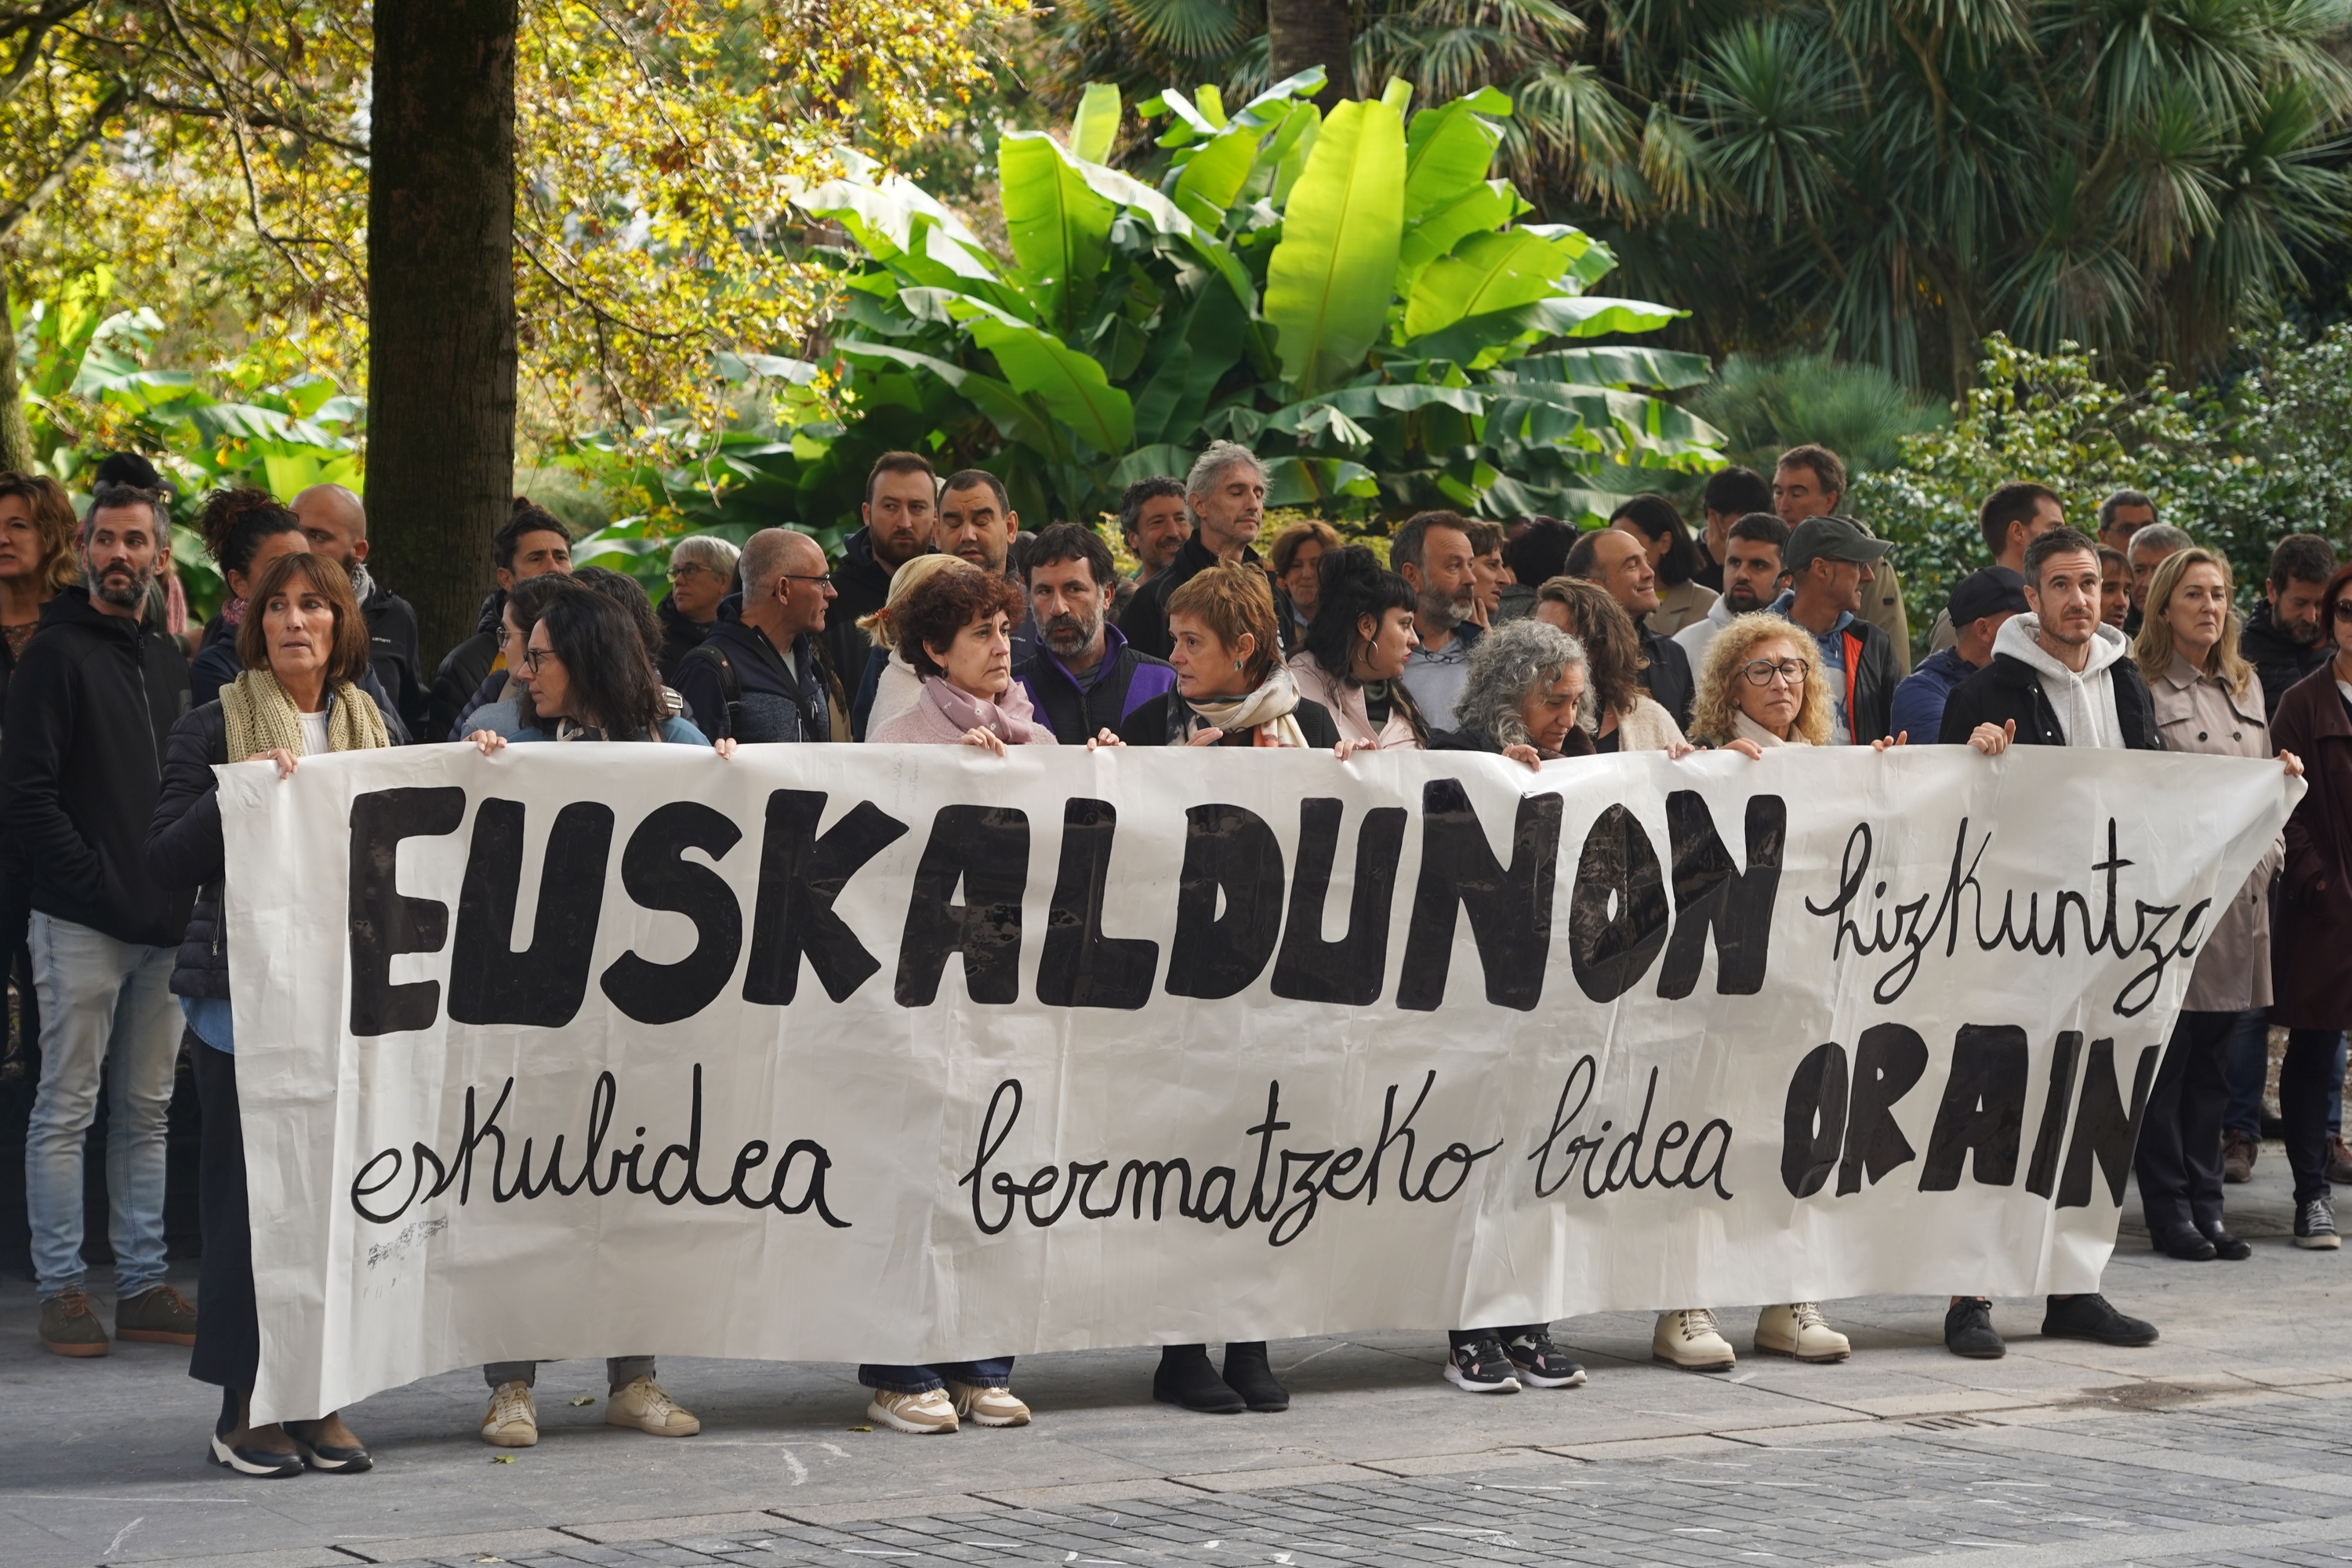 EUSKALDUNON hizkuntza
eskubidea bermatzeko bidea ORAIN